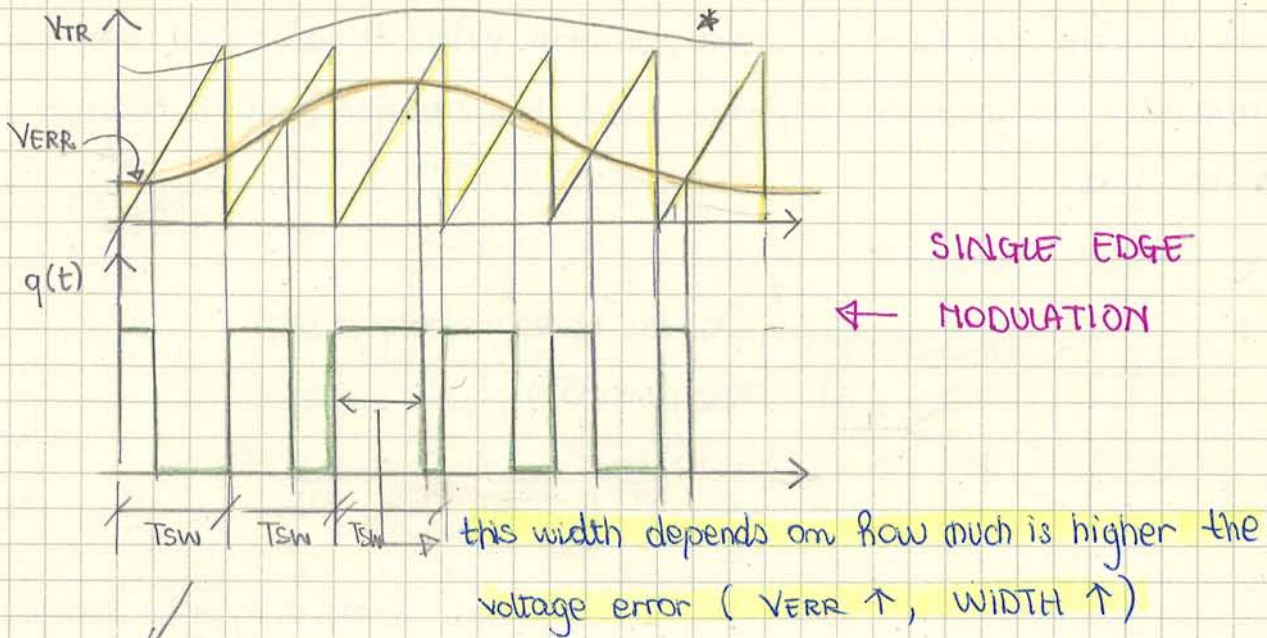 VTR *
VERR
q(t)
SINGLE EDGE
← MODULATION
TSW TSW TSW this width depends on how much is higher the
voltage error ( VERR ↑, WIDTH ↑)